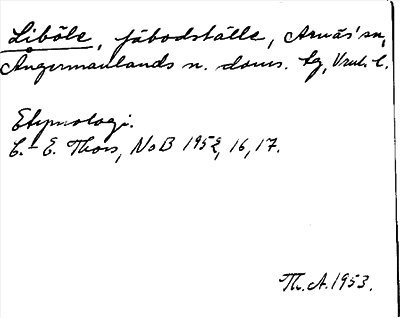 Liböle, fäbodställe, Arnäs' sn,
Ångermanlands n. doms. tg, Vnrl. l.
Etymologi.
C.-E. Thors, NoB 1952, 16, 17.
Th. A. 1953.